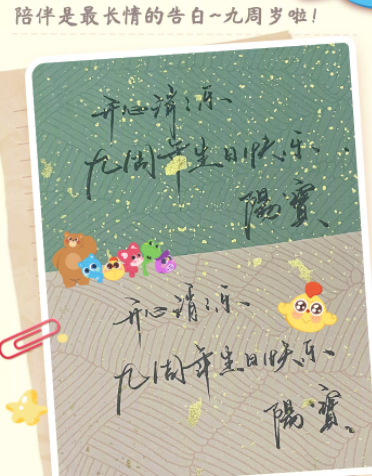 陪伴是最长情的告白~九周岁啦!
开心消消乐、
九周年生日快乐、
陽寶、
开心消消乐、
九周年生日快乐、
陽寶、